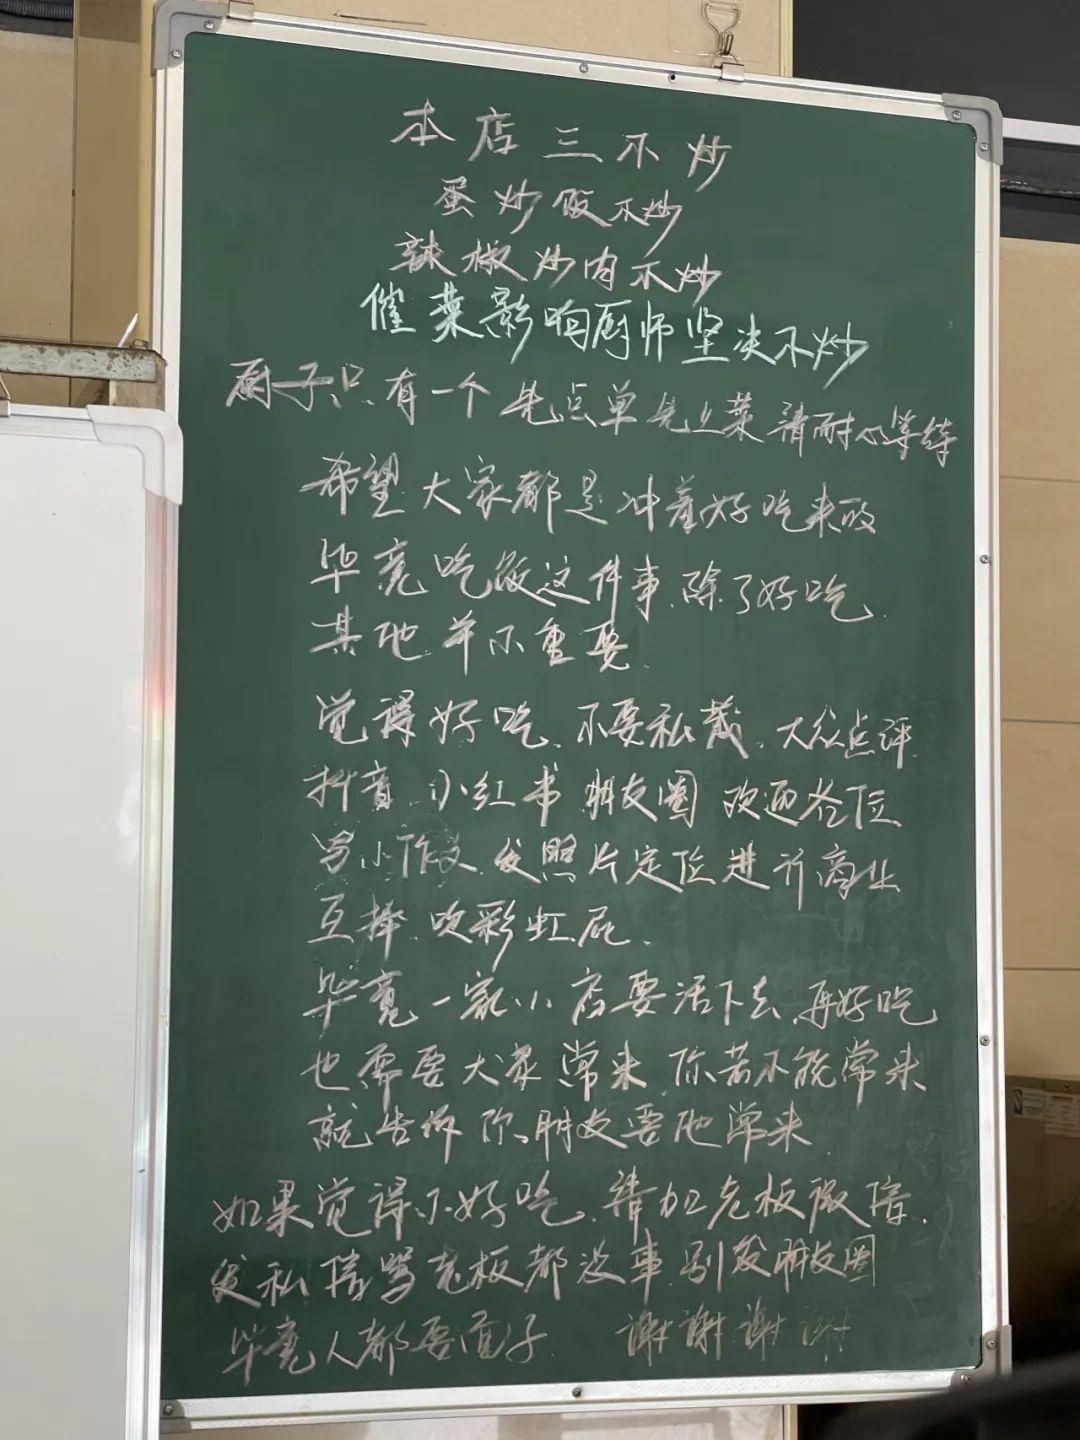 本店三不炒
蛋炒饭不炒
辣椒炒肉不炒
催菜影响厨师坚决不炒
厨子只有一个 先点单先上菜 请耐心等待
希望大家都是冲着好吃来的
毕竟吃饭这件事.除了好吃.
其他并不重要.
觉得好吃.不要私藏.大众点评
抖音.小红书.朋友圈 欢迎各位
写小作文.发照片定位进行商业
互捧.吹彩虹屁.
毕竟一家小店要活下去.再好吃
也需要大家常来.你若不能常来
就告诉你朋友要他常来.
如果觉得不好吃.请加老板微信.
发私信骂老板都没事.别发朋友圈
毕竟人都要面子. 谢谢谢谢